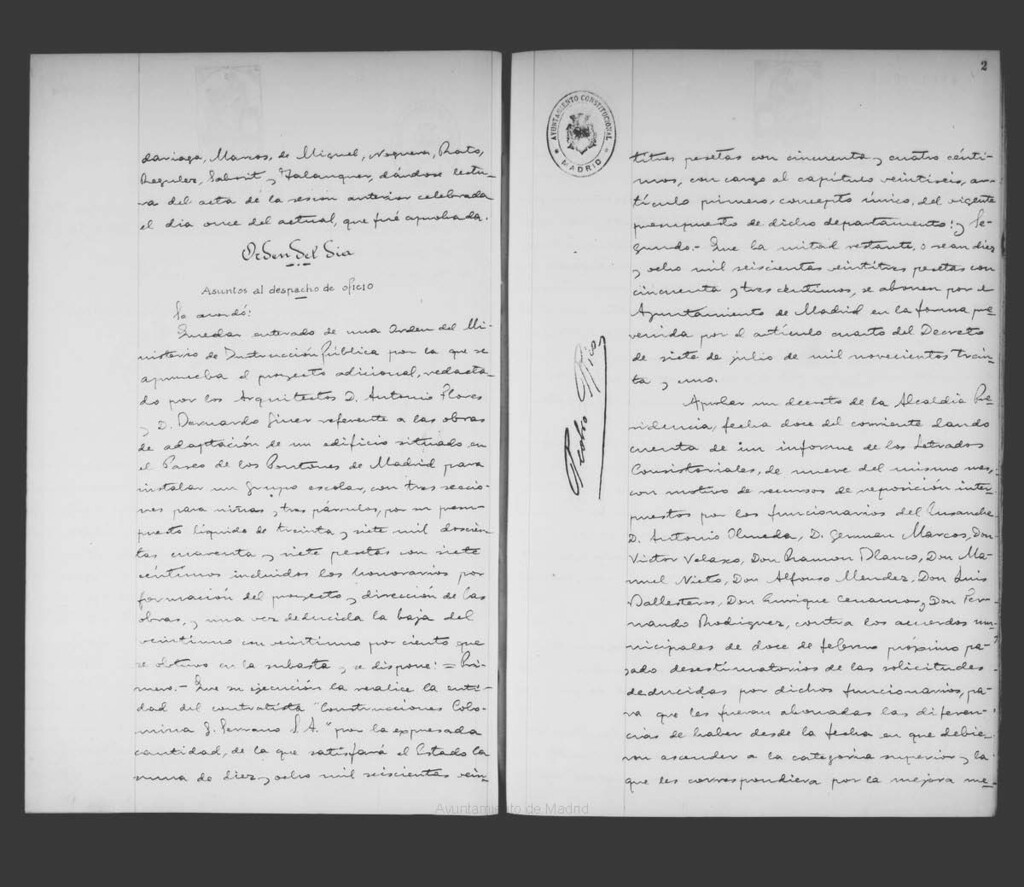 dariaga, Marcos, de Miguel, Noguera, Rato,
Regulez, Saborit y Talanquer, dándose lectu-
ra del acta de la sesión anterior celebrada
el dia once del actual, que fué aprobada.
Orden del Dia
Asuntos al despacho de oficio
Se acordó:
Quedar enterado de una Orden del Mi-
nisterio de Instrucción Pública por la que se
aprueba el proyecto adicional, redacta-
do por los Arquitectos D. Antonio Flores
y D. Bernardo Giner referente a las obras
de adaptación de un edificio situado en
el Paseo de los Pontones de Madrid para
instalar un grupo escolar, con tres seccio-
nes para niñas y tres párvulos, por su presu-
puesto líquido de treinta y siete mil doscien-
tas cuarenta y siete pesetas con siete
céntimos incluidos los honorarios por
formación del proyecto y dirección de las
obras, y una vez deducida la baja del
veintiuno con veintiuno por ciento que
se obtuvo en la subasta y se dispone: = Pri-
mero.- Que su ejecución la realice la enti-
dad del contratista "Construcciones Colo-
mina G. Serrano S.A." por la expresada
cantidad, de la que satisfará el Estado la
suma de diez y ocho mil seiscientas vein-
2
AYUNTAMIENTO CONSTITUCIONAL
MADRID
titres pesetas con cincuenta y cuatro cénti-
mos, con cargo al capítulo veintiseis, ar-
tículo primero, concepto único, del vigente
presupuesto de dicho departamento; y Se-
gundo.- Que la mitad restante, o sean diez
y ocho mil seiscientas veintitres pesetas con
cincuenta y tres céntimos, se abonen por el
Ayuntamiento de Madrid en la forma pre-
venida por el artículo cuarto del Decreto
de siete de julio de mil novecientos trein-
ta y uno.
Aprobar un decreto de la Alcaldía Pre-
sidencia, fecha doce del corriente dando
cuenta de un informe de los Letrados
Consistoriales, de nueve del mismo mes,
con motivo de recursos de reposición inter-
puestos por los funcionarios del Ensanche
D. Antonio Olmeda, D. German Marcos, Don
Victor Velasco, Don Ramon Blanco, Don Ma-
nuel Nieto, Don Alfonso Mendez, Don Luis
Ballesteros, Don Enrique Cenamor y Don Fer-
nando Rodriguez, contra los acuerdos mu-
nicipales de doce de febrero próximo pa-
sado desestimatorios de las solicitudes
deducidas por dichos funcionarios, pa-
ra que les fueran abonadas las diferen-
cias de haber desde la fecha en que debie-
ron ascender a la categoría superior y la
que les correspondiera por la mejora me-
Pedro Rico
Ayuntamiento de Madrid